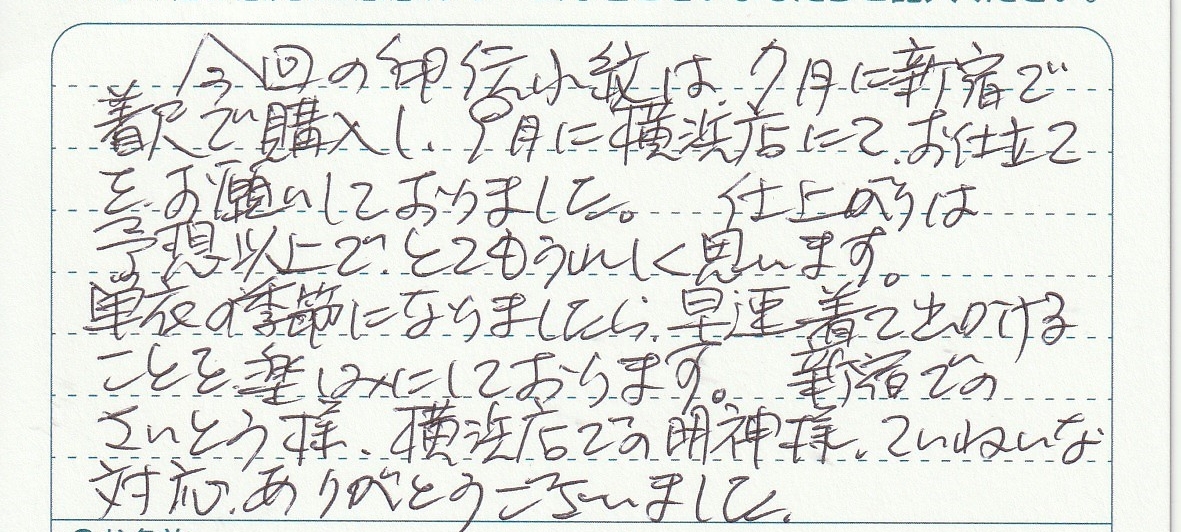 今回の印伝小紋は、7月に新宿で
着尺で購入し、9月に横浜店にて、お仕立て
を、お願いしておりました。 仕上がりは
予想以上で、とてもうれしく思います。
単衣の季節になりましたら、早速着て出かける
ことを楽しみにしております。 新宿での
さいとう様、横浜店での明神様、ていねいな
対応、ありがとうございました。